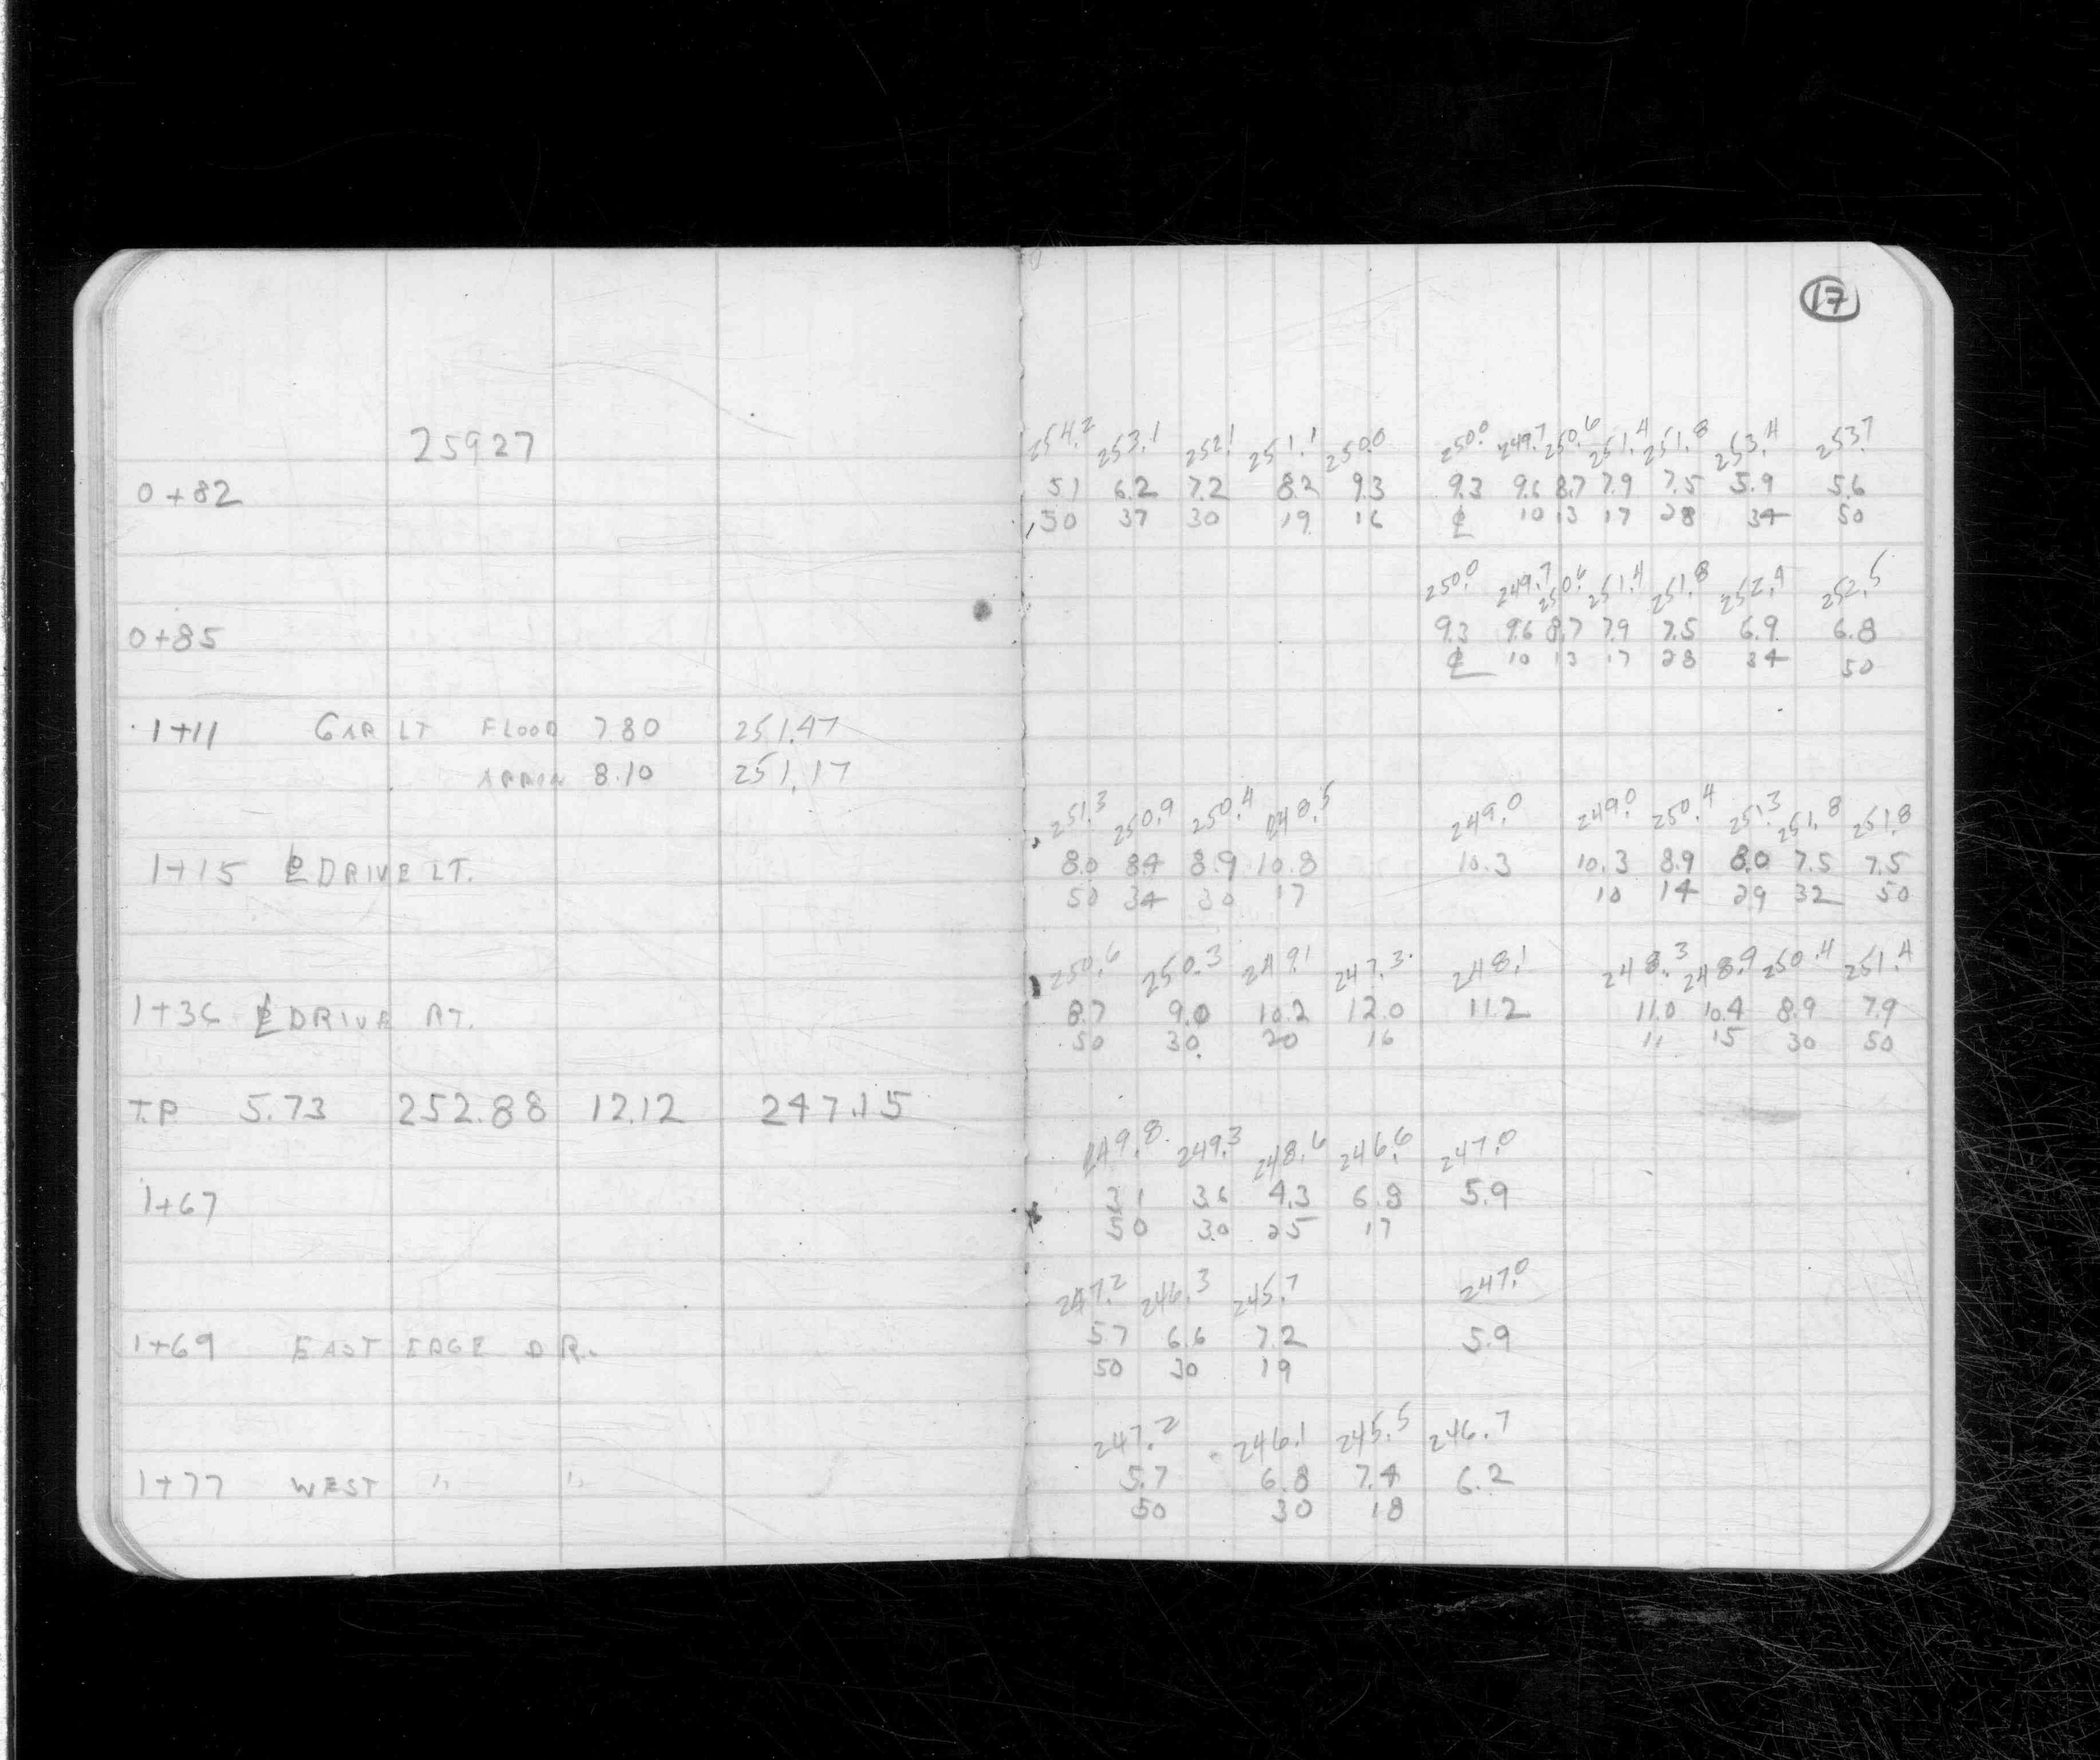 17
25927
254.2 253.1 252.1 251.1 250.0 250.0 249.7 250.6 251.4 251.8 253.4 253.7
0+82 5.1 6.2 7.2 8.2 9.3 9.3 9.6 8.7 7.9 7.5 5.9 5.6
50 37 30 19 16 ℄ 10 13 17 28 34 50
250.0 249.7 250.6 251.4 251.8 252.4 252.5
0+85 9.3 9.6 8.7 7.9 7.5 6.9 6.8
℄ 10 13 17 28 34 50
1+11 GAR LT FLOOR 780 251.47
APRON 8.10 251.17
251.3 250.9 250.4 248.5 249.0 249.0 250.4 251.3 251.8 251.8
1+15 ℄ DRIVE LT. 8.0 8.4 8.9 10.8 10.3 10.3 8.9 8.0 7.5 7.5
50 34 30 17 10 14 29 32 50
250.6 250.3 249.1 247.3 248.1 248.3 248.9 250.4 251.4
1+36 ℄ DRIVE RT. 8.7 9.0 10.2 12.0 11.2 11.0 10.4 8.9 7.9
50 30 20 16 11 15 30 50
T.P. 5.73 252.88 12.12 247.15
249.8 249.3 248.6 246.6 247.0
1+67 3.1 3.6 4.3 6.3 5.9
50 30 25 17
247.2 246.3 245.7 247.0
1+69 EAST EDGE DR. 5.7 6.6 7.2 5.9
50 30 19
247.2 246.1 245.5 246.7
1+77 WEST " " 5.7 6.8 7.4 6.2
50 30 18